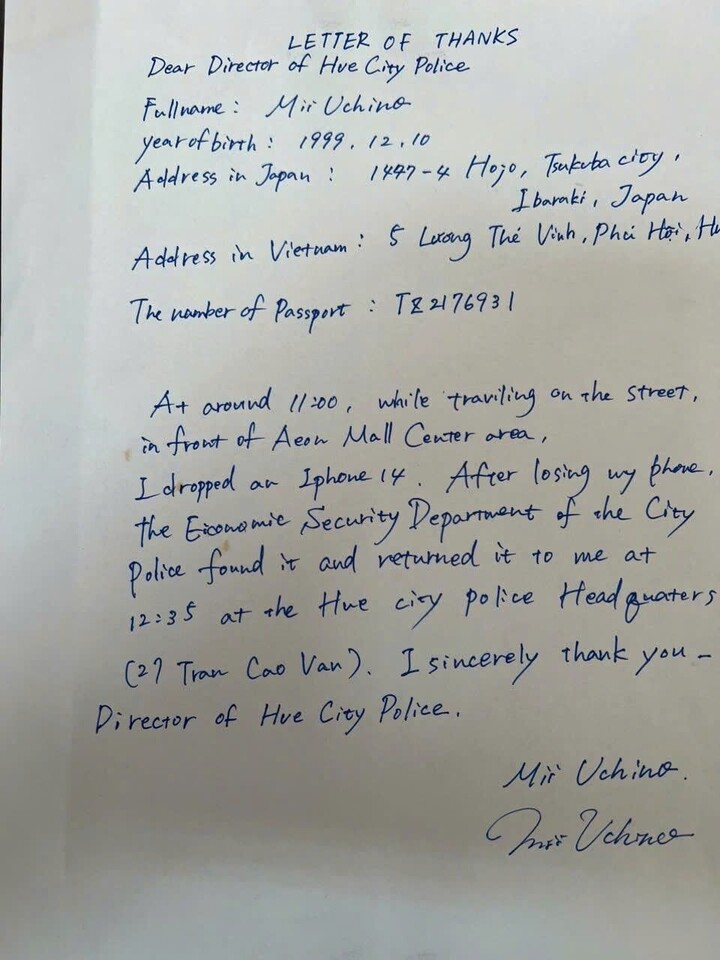 LETTER OF THANKS
Dear Director of Hue City Police
Fullname : Mii Uchino
year of birth : 1999. 12. 10
Address in Japan : 1497-4 Hojo, Tsukuba city,
Ibaraki, Japan
Address in Vietnam : 5 Lương Thế Vinh, Phú Hội, Hu
The number of Passport : TZ2176931
At around 11:00, while traviling on the street,
in front of Aeon Mall Center area,
I dropped an Iphone 14. After losing my phone,
the Economic Security Department of the City
Police found it and returned it to me at
12:35 at the Hue city police Headquaters
(27 Tran Cao Van). I sincerely thank you -
Director of Hue City Police.
Mii Uchino.
Mii Uchino